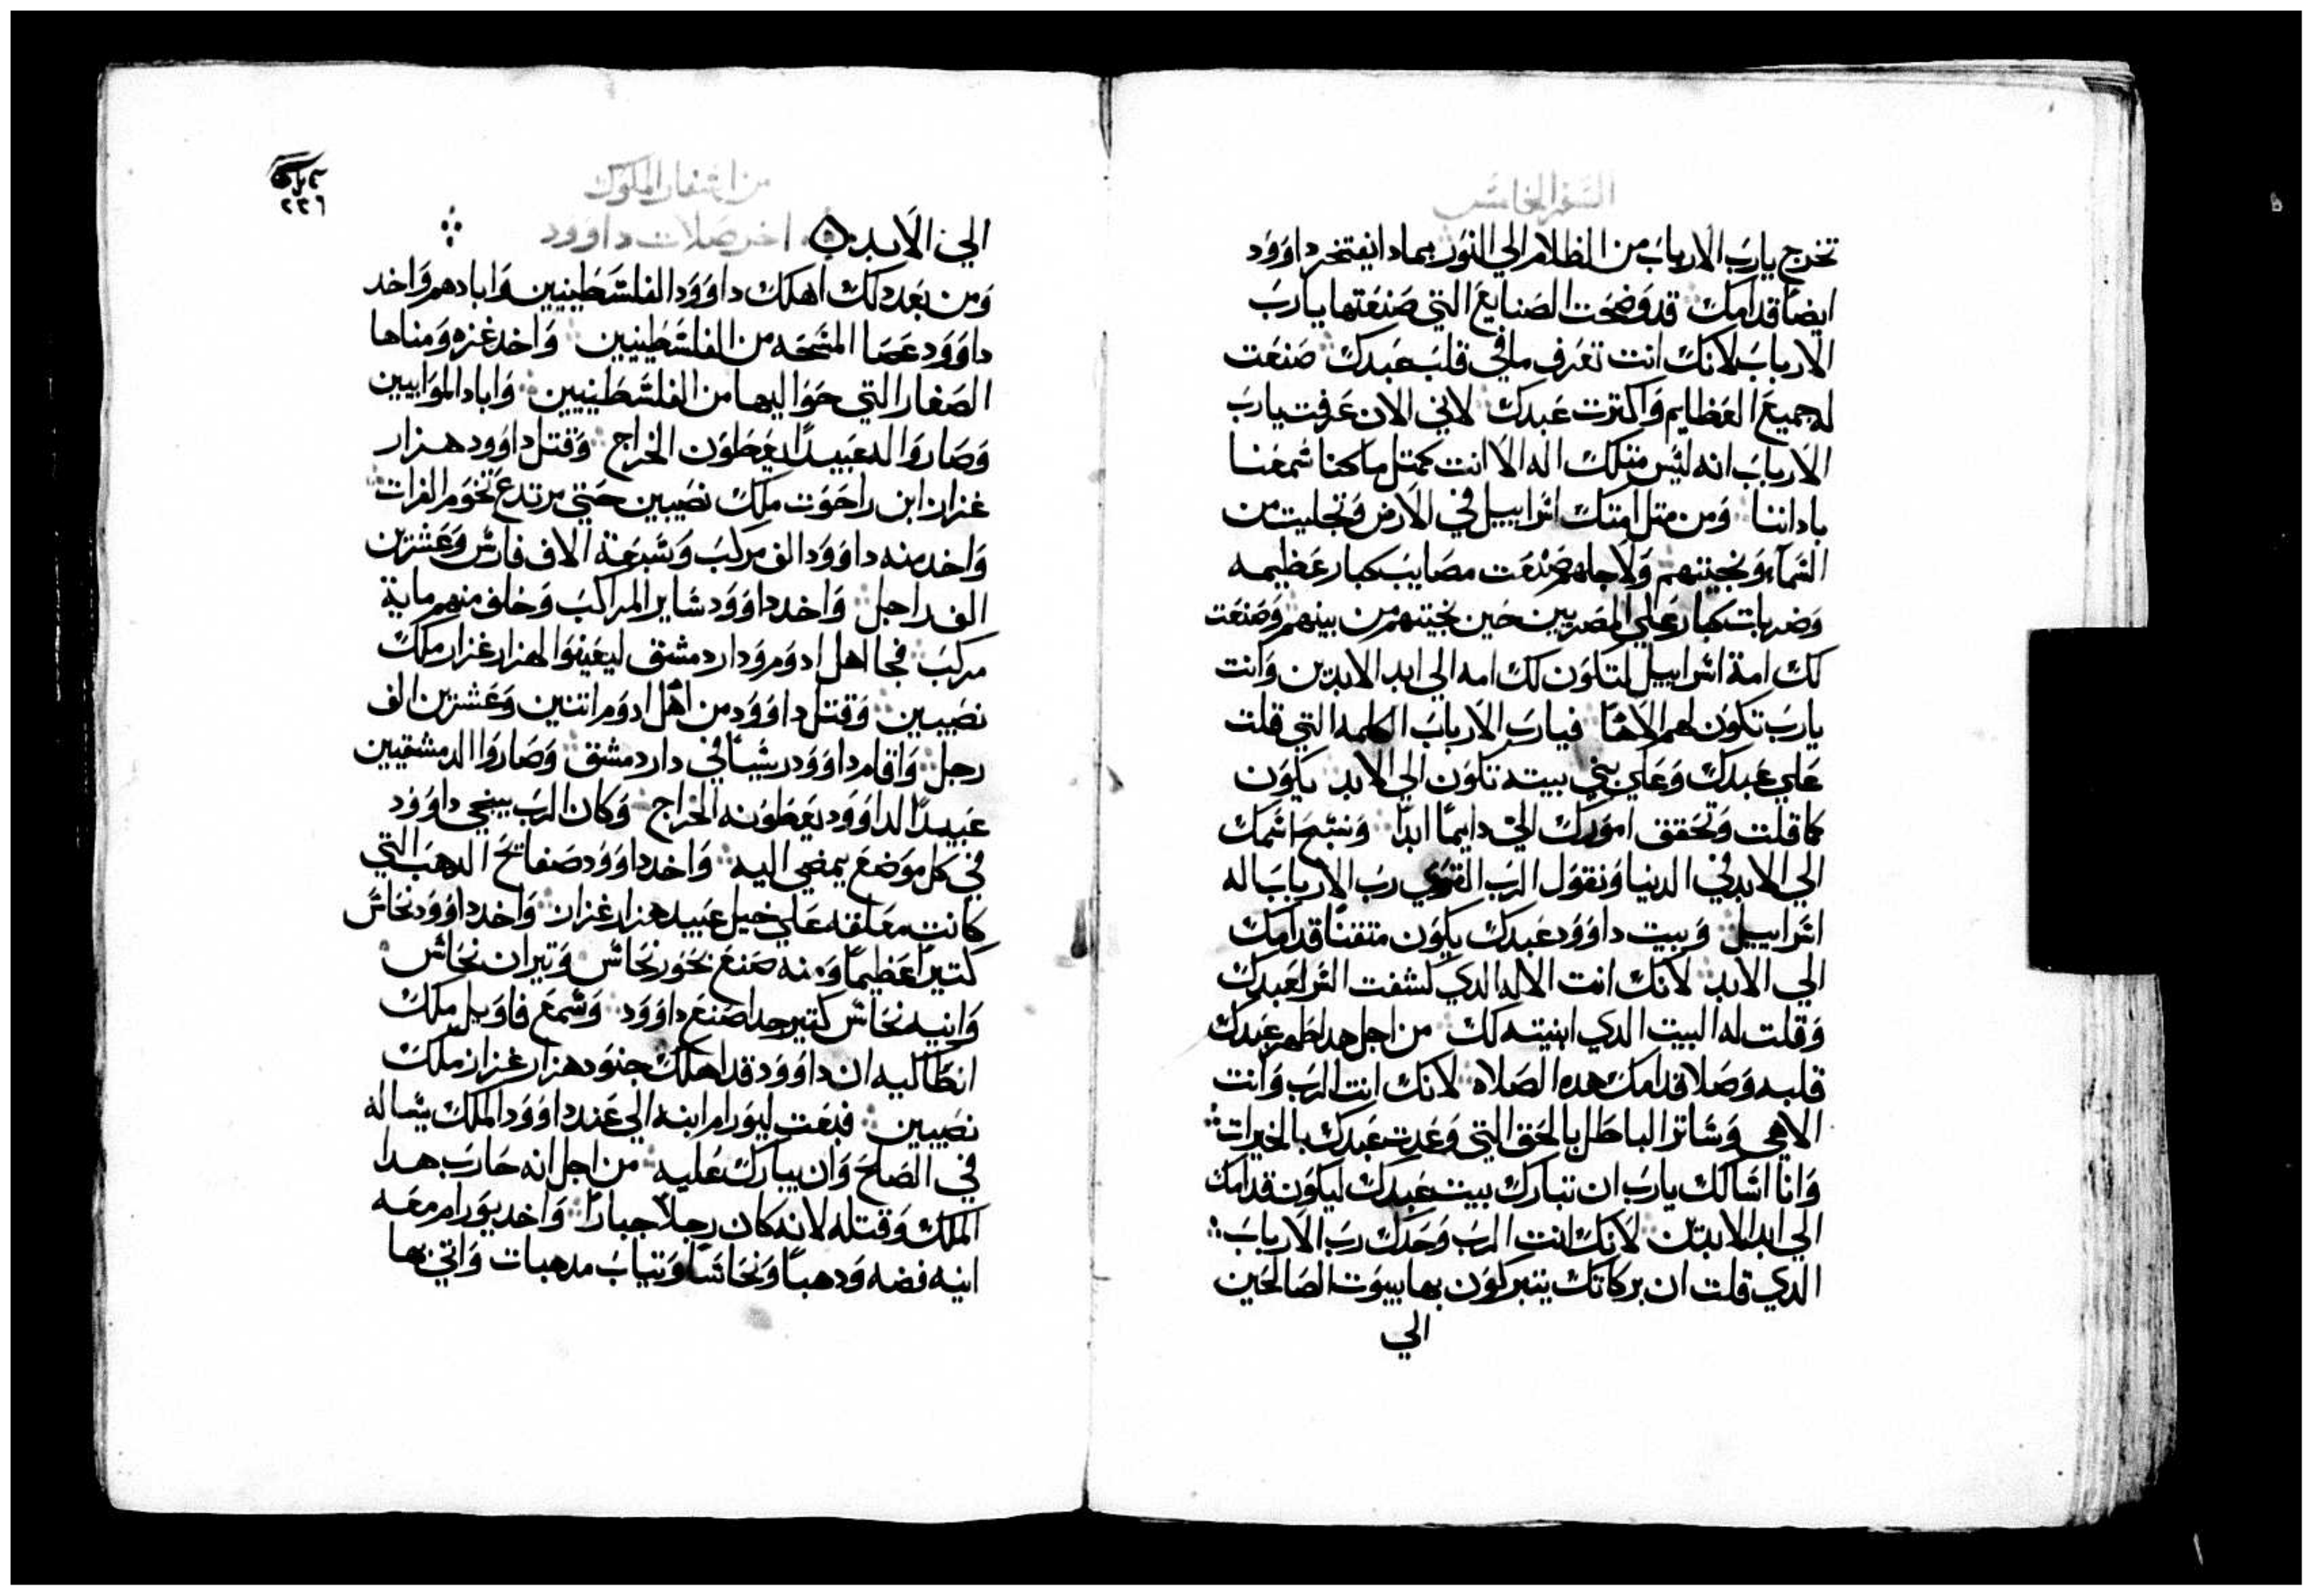 السفر الخامس
تخرج يارب الارباب من الظلام الي النور بمادا يفتخر داوود
ايضا قدامك قد وضحت الصنايع التي صنعتها يارب
الارباب لانك انت تعرف ما في قلب عبدك صنعت
له جميع العظايم واكترت عبدك لاني الان عرفت يارب
الارباب انه ليس متلك اله الا انت كمتل ما كنا سمعنا
باداننا ومن متل امتك اسراييل في الارض وتجليت من
السماء ونجيتهم ولاجلهم صنعت مصايب كبار عظيمه
وضربات كبار علي المصريين حين نجيتهم من بينهم وصنعت
لك امة اسراييل لتكون لك امه الي ابد الابدين وانت
يارب تكون لهم الاهًا فيارب الارباب الكلمه التي قلت
علي عبدك وعلي بني بيته تكون الي الابد يكون
كما قلت وتحقق امورك الي دايمًا ابدًا ونسبح اسمك
الي الابد في الدنيا ونقول الرب القوي رب الارباب اله
اسراييل وبيت داوود عبدك يكون متقنًا قدامك
الي الابد لانك انت الاله الدي كشفت السر لعبدك
وقلت له البيت الدي ابنيته لك من اجل هدا طهر عبدك
قلبه وصلا قدامك هده الصلاه لانك انت الرب وانت
الاهي وساتر الباطل بالحق التي وعدت عبدك بالخيرات
وانا اسالك يارب ان تبارك بيت عبدك ليكون قدامك
الي ابد الابدين لانك انت الرب وحدك رب الارباب
الدي قلت ان بركاتك يتبركون بها بيوت الصالحين
الي
من اسفار الملوك
٢٢٦
الي الابد اخر صلات داوود
ومن بعد دلك اهلك داوود الفلسطينيين وابادهم واخد
داوود عصا المسحه من الفلسطينيين واخد غزه ومناها
الصغار التي حواليها من الفلسطينيين واباد الموابيين
وصاروا له عبيدًا يعطون الخراج وقتل داوود هزار
غزار ابن راحوت ملك نصيبين حتي مرتدع تخوم الفرات
واخد منه داوود الف مركب وسبعة الاف فارس وعشرين
الف راجل واخد داوود ساير المراكب وخلف منهم ماية
مركب فجا اهل ادوم ودار دمشق ليعينوا لهزار غزار ملك
نصيبين وقتل داوود من اهل ادوم اتنين وعشرين الف
رجل واقام داوود رييسًا في دار دمشق وصاروا الدمشقيين
عبيدًا لداوود يعطونه الخراج وكان الرب ينجي داوود
في كل موضع يمضي اليه واخد داوود صفايح الدهب التي
كانت معلقه علي خيل عبيد هزار غزار واخد داوود نحاس
كتيرًا عظيمًا ومنه صنع بحور نحاس وتيران نحاس
وانيه نحاس كتير جدا صنع داوود وسمع فاويل ملك
انطاكيه ان داوود قد اهلك جنود هزار غزار ملك
نصيبين فبعت ليورام ابنه الي عند داوود الملك يساله
في الصلح وان يبارك عليه من اجل انه حارب هدا
الملك وقتله لانه كان رجلًا جبارًا واخد يورام معه
انيه فضه ودهبًا ونحاسًا وتياب مدهبات واتي بها